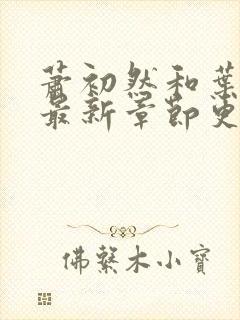 蕭初然和葉
最新章節更
佛繫木小寶